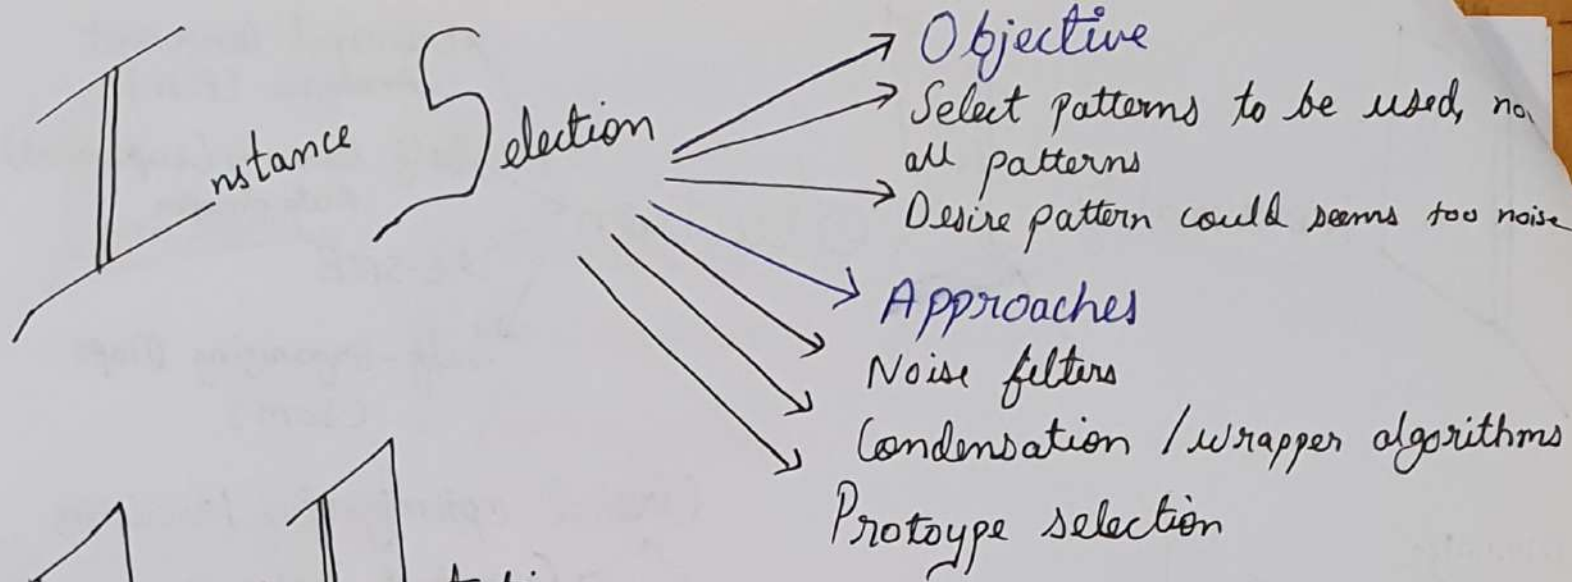 Instance Selection
Objective
Select patterns to be used,
all patterns
Desire pattern could seems too noise
Approaches
Noise filters
Condensation / wrapper algorithms
Protoype selection